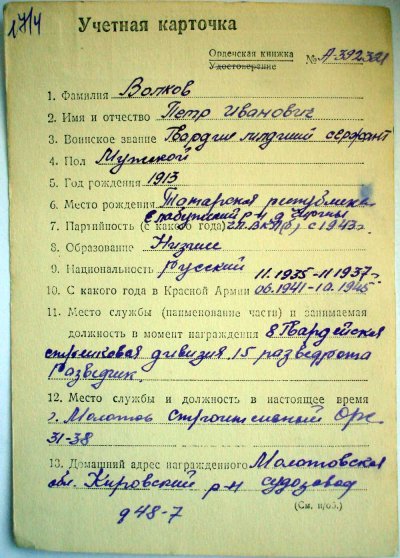 1714
Учетная карточка
Орденская книжка
Удостоверение
№ А 392321
1. Фамилия Волков
2. Имя и отчество Петр Иванович
3. Воинское звание Гвардии младший сержант
4. Пол Мужской
5. Год рождения 1913
6. Место рождения Татарская республика
Елабужский р-н д.
7. Партийность (с какого года) чл. ВКП(б) с 1943 г.
8. Образование Низшее
9. Национальность Русский 11.1935-11.1937 г
10. С какого года в Красной Армии 06.1941-10.1945
11. Место службы (наименование части) и занимаемая
должность в момент награждения 8 Гвардейская
стрелковая дивизия, 15 разведрота
Разведчик.
12. Место службы и должность в настоящее время
г. Молотов строительный
31-38
13. Домашний адрес награжденного Молотовская
обл. Кировский р-н судозавод
(См. н/об.)
д 48-7